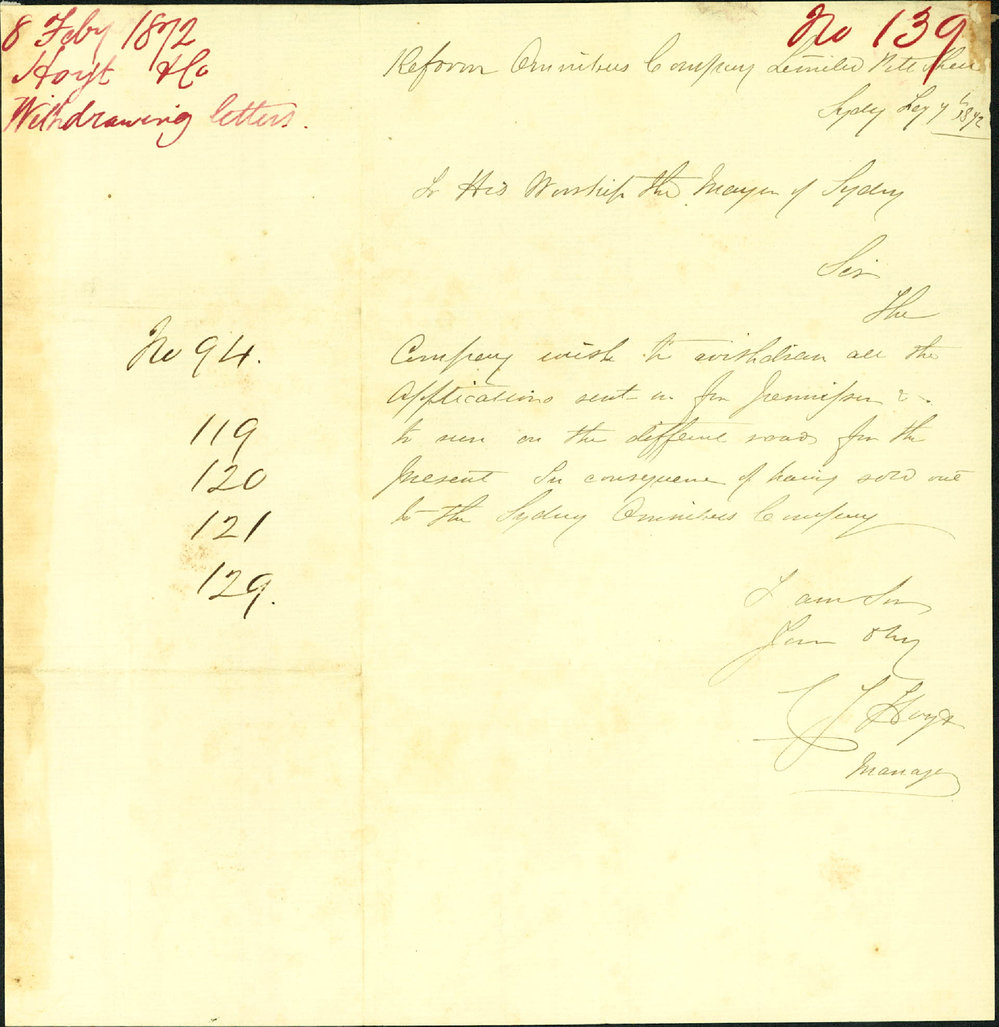 8 Feby 1872
Hoyt & Co
Withdrawing letters.
No 139
Reform Omnibus Company Limited Pitt Street
Sydney Feby 7th 1872
To His Worship the Mayor of Sydney
Sir
The
Company wish to withdraw all the
applications sent in for permission &c
to run on the different roads for the
present In consequence of having sold out
to the Sydney Omnibus Company
I am Sir
Your Obt
Hoyt
Manager
No 94.
119
120
121
129.